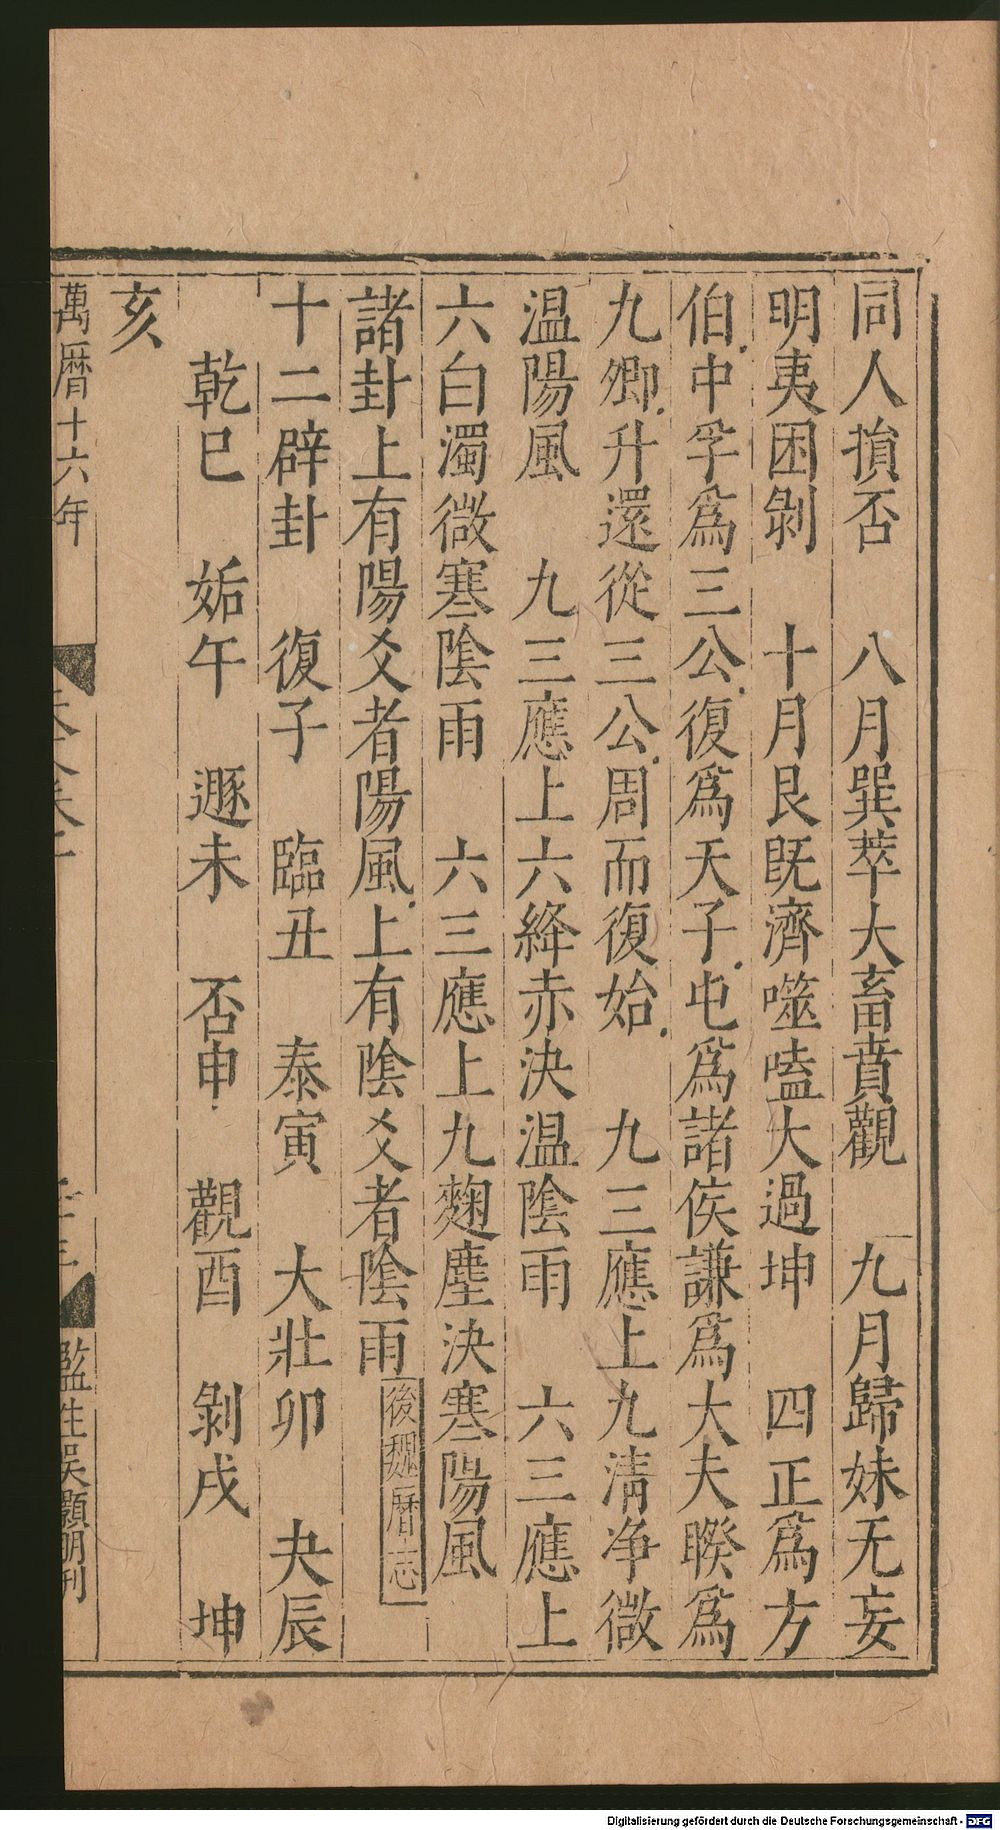 同人損否　八月巽萃大畜賁觀　九月歸妹无妄
明夷困剝　十月艮既濟噬嗑大過坤　四正爲方
伯中孚爲三公復爲天子屯爲諸侯謙爲大夫睽爲
九卿升還從三公周而復始　九三應上九清净微
温陽風　九三應上六絳赤決温陰雨　六三應上
六白濁微寒陰雨　六三應上九麴塵決寒陽風
諸卦上有陽爻者陽風上有陰爻者陰雨後魏曆志
十二辟卦　復子　臨丑　泰寅　大壯卯　夬辰
乾巳　姤午　遯未　否申　觀酉　剝戌　坤
亥
萬曆十六年
監生吴顯明刊
Digitalisierung gefördert durch die Deutsche Forschungsgemeinschaft - DFG